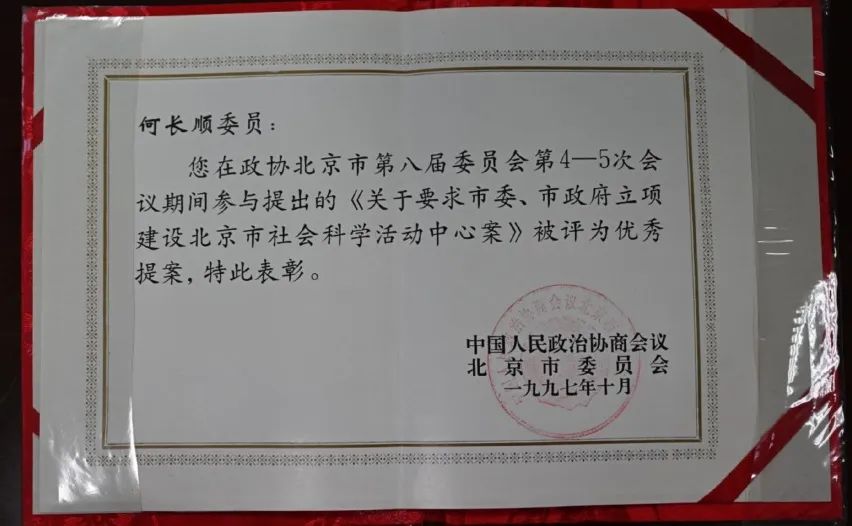 何长顺委员：
您在政协北京市第八届委员会第4—5次会
议期间参与提出的《关于要求市委、市政府立项
建设北京市社会科学活动中心案》被评为优秀
提案，特此表彰。
中国人民政治协商会议
北京市委员会
一九九七年十月